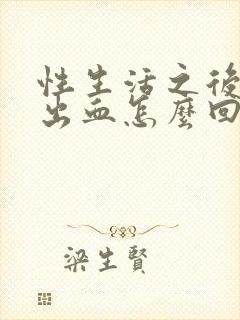 性生活之後
出血怎麼回
梁生賢